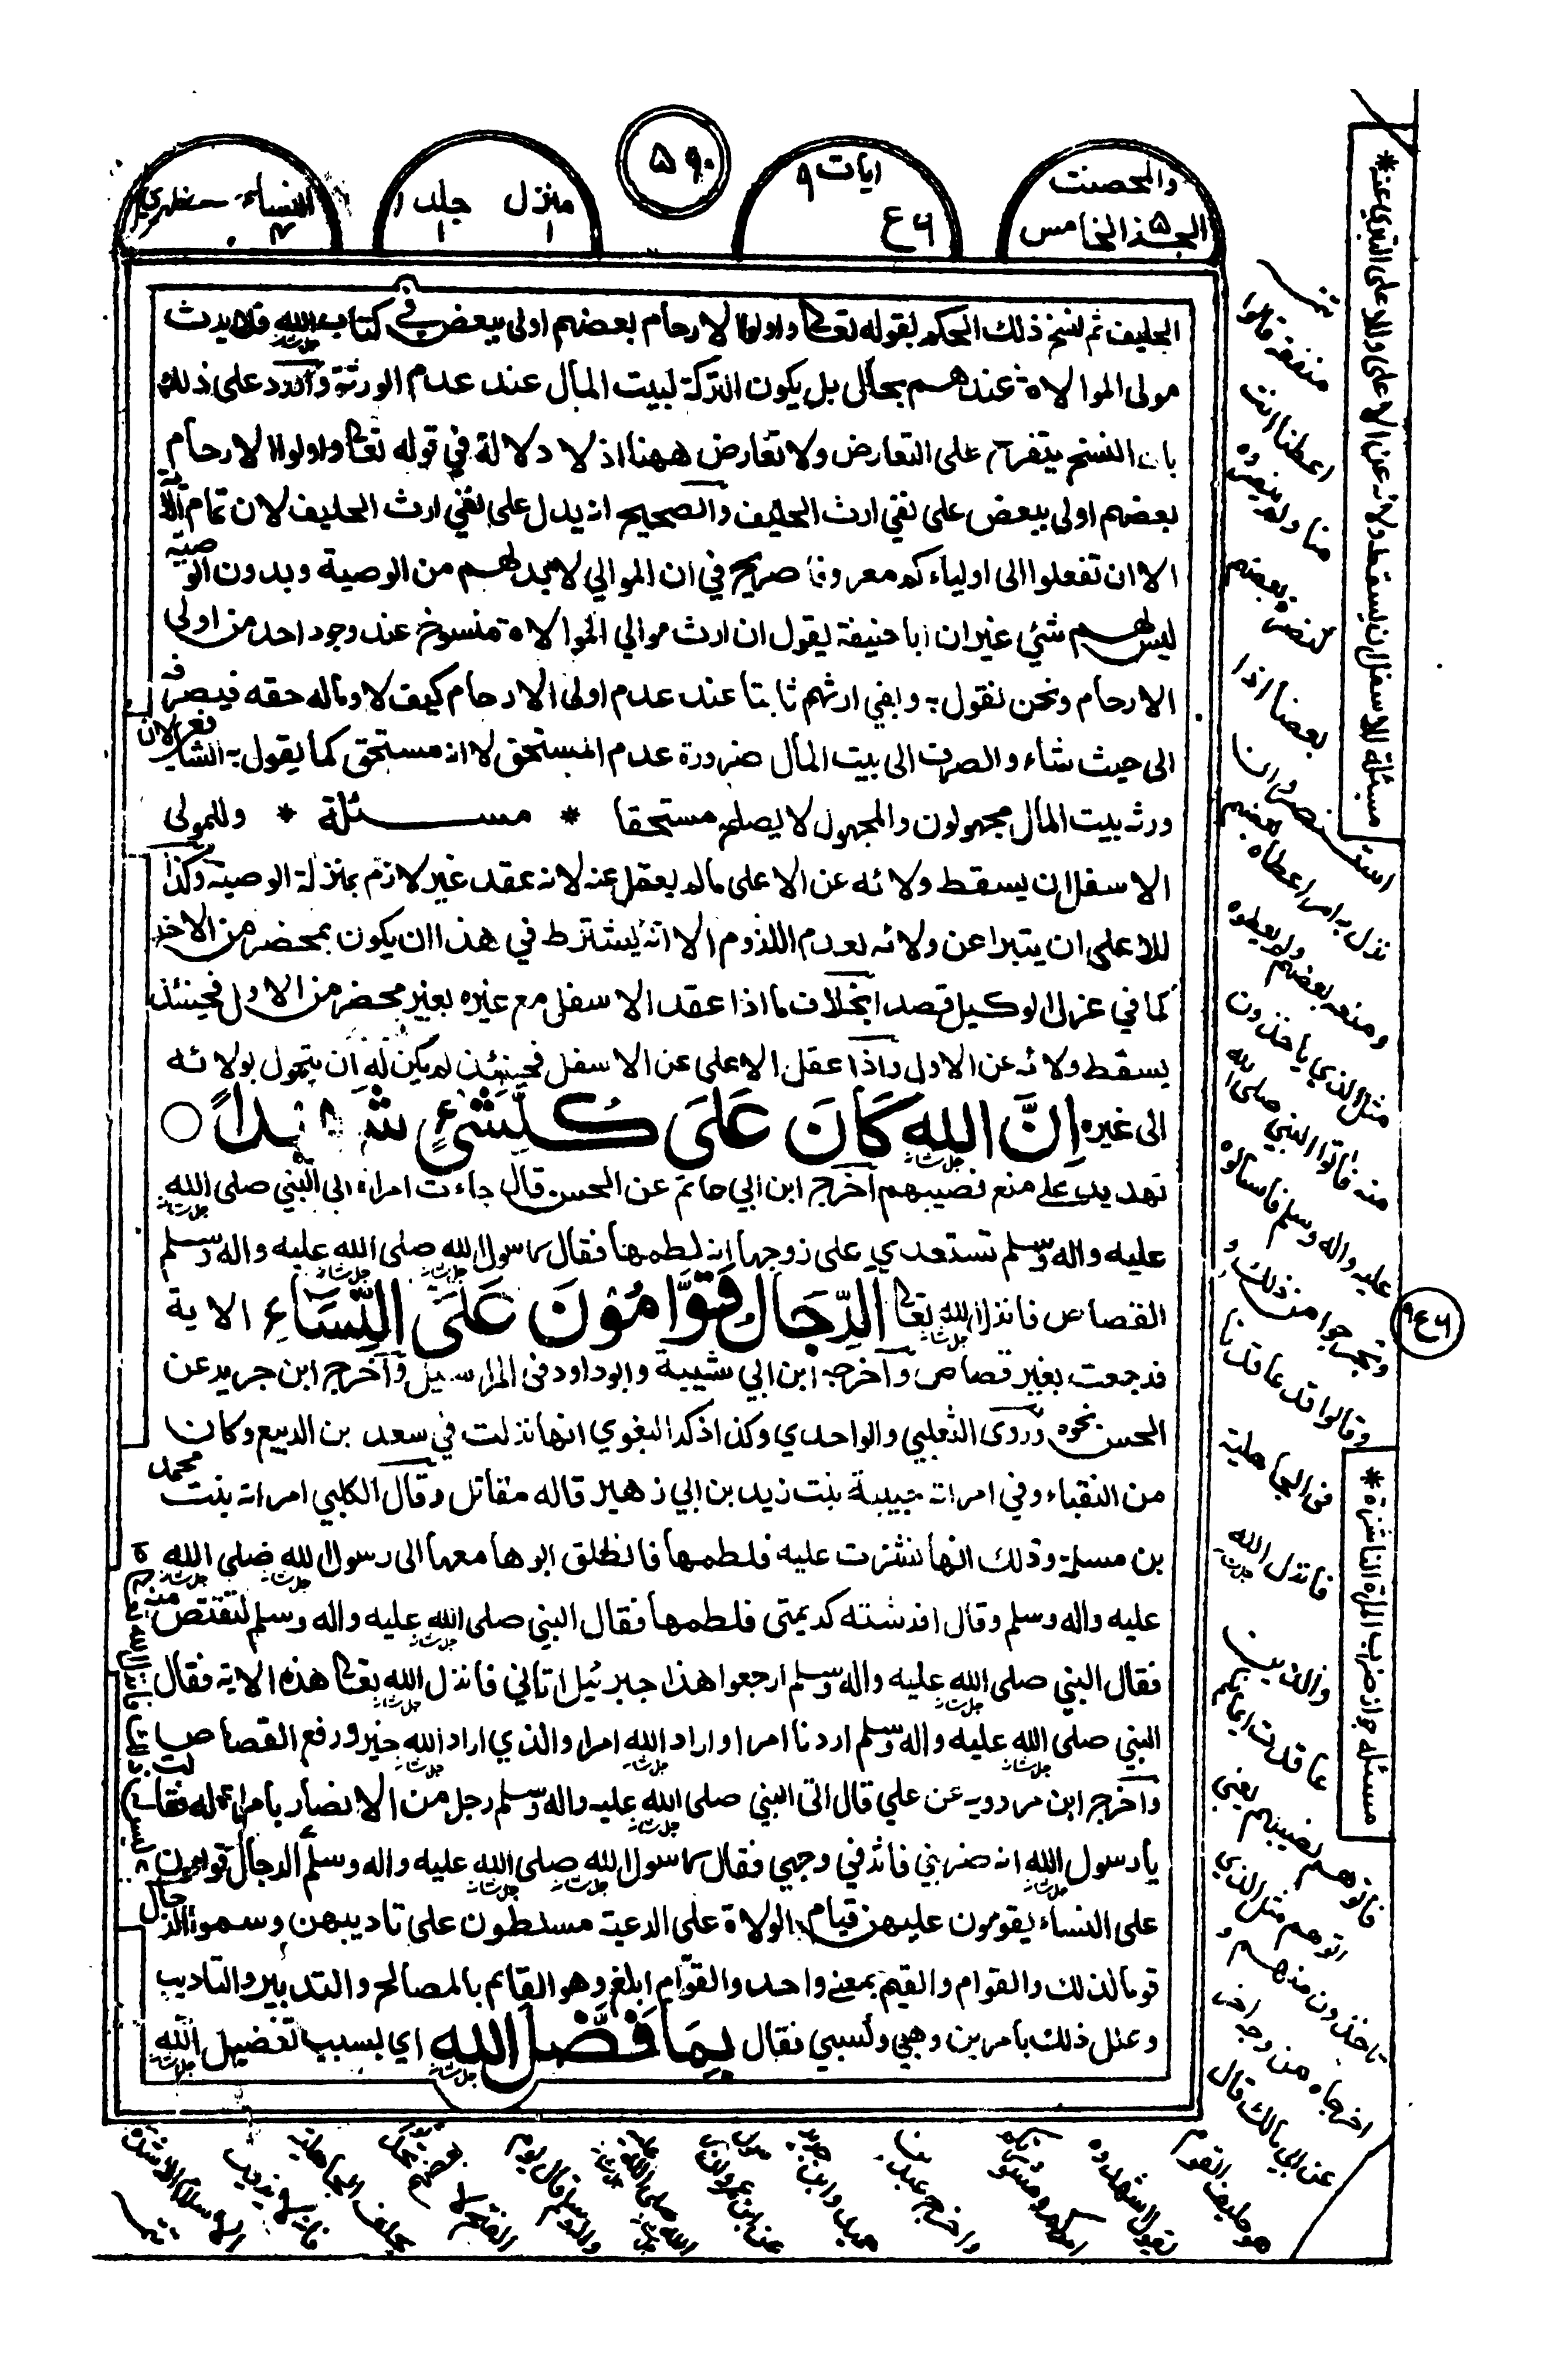 والمحصنت
الجزء الخامس ٥
ايات ٩
ع ٦
٥٩٠
منزل ١
جلد ١
النساء ٤ مظهري
الحليف ثم نسخ ذلك الحكم بقوله تعالى واولوا الارحام بعضهم اولى ببعض في كتاب الله فلا يرث
مولى الموالاة عندهم بحال بل يكون التركة لبيت المال عند عدم الورثة والرد على ذلك
بان النسخ يتفرع على التعارض ولا تعارض ههنا اذ لا دلالة في قوله تعالى واولوا الارحام
بعضهم اولى ببعض على نفي ارث الحليف والصحيح انه يدل على نفي ارث الحليف لان تمام الاية
الا ان تفعلوا الى اولياءكم معروفا صريح في ان الموالي لابد لهم من الوصية وبدون الوصية
ليس لهم شئ غير ان ابا حنيفة يقول ان ارث موالي الموالاة منسوخ عند وجود احد من اولى
الارحام ونحن نقول به وبقي ارثهم ثابتا عند عدم اولى الارحام كيف لا وماله حقه فيصرفه
الى حيث شاء والصرف الى بيت المال ضرورة عدم المستحق لا انه مستحق كما يقول به الشافعي لان
ورثه بيت المال مجهولون والمجهول لا يصلح مستحقا * مسئلة * وللمولى
الاسفل ان يسقط ولائه عن الاعلى مالم يعقل عنه لانه عقد غير لازم بمنزلة الوصية وكذا
للاعلى ان يتبرا عن ولائه لعدم اللزوم الا انه يشترط في هذا ان يكون بمحضر من الاخر
كما في عزل الوكيل قصدا بخلاف ما اذا عقد الاسفل مع غيره بغير محضر من الاول فحينئذ
يسقط ولائه عن الاول واذا عقل الاعلى عن الاسفل فحينئذ لم يكن له ان يتحول بولائه
الى غيره اِنَّ اللهَ كَانَ عَلَىٰ كُلِّ شَيْءٍ شَهِيدًا ○
تهديد على منع نصيبهم اخرج ابن ابي حاتم عن الحسن قال جاءت امراة الى النبي صلى الله
عليه واله وسلم تستعدي على زوجها انه لطمها فقال رسول الله صلى الله عليه واله وسلم
القصاص فانزل الله تعالى اَلرِّجَالُ قَوَّامُوْنَ عَلَى النِّسَاءِ الاية
فرجعت بغير قصاص واخرجه ابن ابي شيبة وابوداود في المراسيل واخرج ابن جرير عن
الحسن نحوه وروى الثعلبي والواحدي وكذا ذكر البغوي انها نزلت في سعد بن الربيع وكان
من النقباء وفي امراته حبيبة بنت زيد بن ابي زهير قاله مقاتل وقال الكلبي امراته بنت محمد
بن مسلمة وذلك انها نشزت عليه فلطمها فانطلق ابوها معها الى رسول الله صلى الله
عليه واله وسلم وقال افرشته كريمتي فلطمها فقال النبي صلى الله عليه واله وسلم لتقتص منه
فقال النبي صلى الله عليه واله وسلم ارجعوا هذا جبرئيل اتاني فانزل الله تعالى هذه الاية فقال
النبي صلى الله عليه واله وسلم اردنا امرا واراد الله امرا والذي اراد الله خير ورفع القصاص
واخرج ابن مردويه عن علي قال اتى النبي صلى الله عليه واله وسلم رجل من الانصار بامراة له فقالت
يا رسول الله انه ضربني فاثر في وجهي فقال رسول الله صلى الله عليه واله وسلم الرجال قوامون
على النساء يقومون عليهن قيام الولاة على الرعية مسلطون على تاديبهن وسموا الرجال
قوما لذلك والقوام والقيم بمعنى واحد والقوام ابلغ وهو القائم بالمصالح والتدبير والتاديب
وعلل ذلك بامرين وهبي وكسبي فقال بِمَا فَضَّلَ اللهُ اي بسبب تفضيل الله
مسئلة للاسفل ان يسقط ولائه عن الاعلى وللاعلى التبري عنه *
مسئله جواز ضرب المراة الناشزة *
ع ٦
منفعة قالوا
اعطنا انت
منا ولم ينصروه
كنصرة بعضهم
بعضا اذا
استنصروا وان
نزل به امر اعطاه بعضهم
ومنعه بعضهم ولم يعطوه
مثل الذي ياخذون
منه فاتوا النبي صلى الله
عليه واله وسلم فاسئلوه
وتحرجوا من ذلك و
وقالوا قد عاقدنا
في الجاهلية
فانزل الله
والذين
عاقدت ايمانكم
فاتوهم نصيبهم يعني
اتوهم مثل الذي
تاخذون منهم و
اخرجاه من وجه اخر
عن ابي مالك قال
هو حليف القوم
يقول اشهدوه
امركم ومشورتكم
واخرج عبد بن